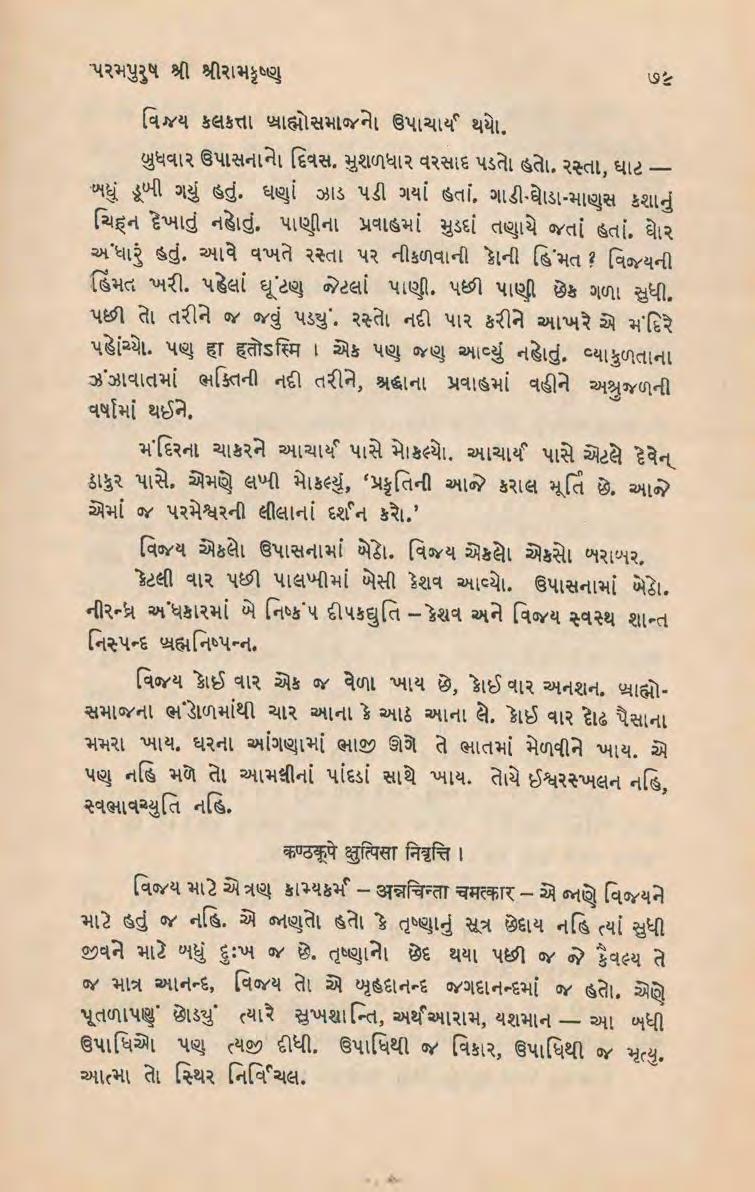 પરમપુરુષ શ્રી શ્રીરામકૃષ્ણ ૭૯
વિજય કલકત્તા બ્રાહ્મોસમાજનો ઉપાચાર્ય થયો.
બુધવાર ઉપાસનાનો દિવસ. મુશળધાર વરસાદ પડતો હતો. રસ્તા, ઘાટ —
બધું ડૂબી ગયું હતું. ઘણાં ઝાડ પડી ગયાં હતાં. ગાડી-ઘોડા-માણુસ કશાનું
ચિહ્‌ન દેખાતું નહોતું. પાણીના પ્રવાહમાં મુડદાં તણાયે જતાં હતાં. ઘોર
અંધારું હતું. આવે વખતે રસ્તા પર નીકળવાની કોની હિંમત ? વિજયની
હિંમત ખરી. પહેલાં ઘૂંટણ જેટલાં પાણી. પછી પાણી છેક ગળા સુધી.
પછી તો તરીને જ જવું પડ્યું. રસ્તો નદી પાર કરીને આખરે એ મંદિરે
પહોંચ્યો. પણ हा हतोऽस्मि । એક પણ જણ આવ્યું નહોતું. વ્યાકુળતાના
ઝંઝાવાતમાં ભક્તિની નદી તરીને, શ્રદ્ધાના પ્રવાહમાં વહીને અશ્રુજળની
વર્ષામાં થઈને.
મંદિરના ચાકરને આચાર્ય પાસે મોકલ્યો. આચાર્ય પાસે એટલે દેવેન્
ઠાકુર પાસે. એમણે લખી મોકલ્યું, ‘પ્રકૃતિની આજે કરાલ મૂર્તિ છે. આજે
એમાં જ પરમેશ્વરની લીલાનાં દર્શન કરો.’
વિજય એકલો ઉપાસનામાં બેઠો. વિજય એકલો એકસો બરાબર.
કેટલી વાર પછી પાલખીમાં બેસી કેશવ આવ્યો. ઉપાસનામાં બેઠો.
નીરન્ધ્ર અંધકારમાં બે નિષ્કંપ દીપકદ્યુતિ – કેશવ અને વિજય સ્વસ્થ શાન્ત
નિસ્પન્દ બ્રહ્મનિષ્પન્ન.
વિજય કોઈ વાર એક જ વેળા ખાય છે, કોઈ વાર અનશન. બ્રાહ્મો-
સમાજના ભંડોળમાંથી ચાર આના કે આઠ આના લે. કોઈ વાર દોઢ પૈસાના
મમરા ખાય. ઘરના આંગણામાં ભાજી ઊગે તે ભાતમાં મેળવીને ખાય. એ
પણ નહિ મળે તો આમલીનાં પાંદડાં સાથે ખાય. તોયે ઈશ્વરસ્ખલન નહિ,
સ્વભાવચ્યુતિ નહિ.
कण्ठकूपे क्षुत्पिसा निवृत्ति ।
વિજય માટે એ ત્રણ કામ્યકર્મ – अन्नचिन्ता चमत्कार – એ જાણે વિજયને
માટે હતું જ નહિ. એ જાણતો હતો કે તૃષ્ણાનું સૂત્ર છેદાય નહિ ત્યાં સુધી
જીવને માટે બધું દુઃખ જ છે. તૃષ્ણાનો છેદ થયા પછી જ જે કૈવલ્ય તે
જ માત્ર આનન્દ, વિજય તો એ બૃહદાનન્દ જગદાનન્દમાં જ હતો. એણે
પૂતળાપણું છોડ્યું ત્યારે સુખશાન્તિ, અર્થઆરામ, યશમાન — આ બધી
ઉપાધિઓ પણ ત્યજી દીધી. ઉપાધિથી જ વિકાર, ઉપાધિથી જ મૃત્યુ.
આત્મા તો સ્થિર નિર્વિચલ.